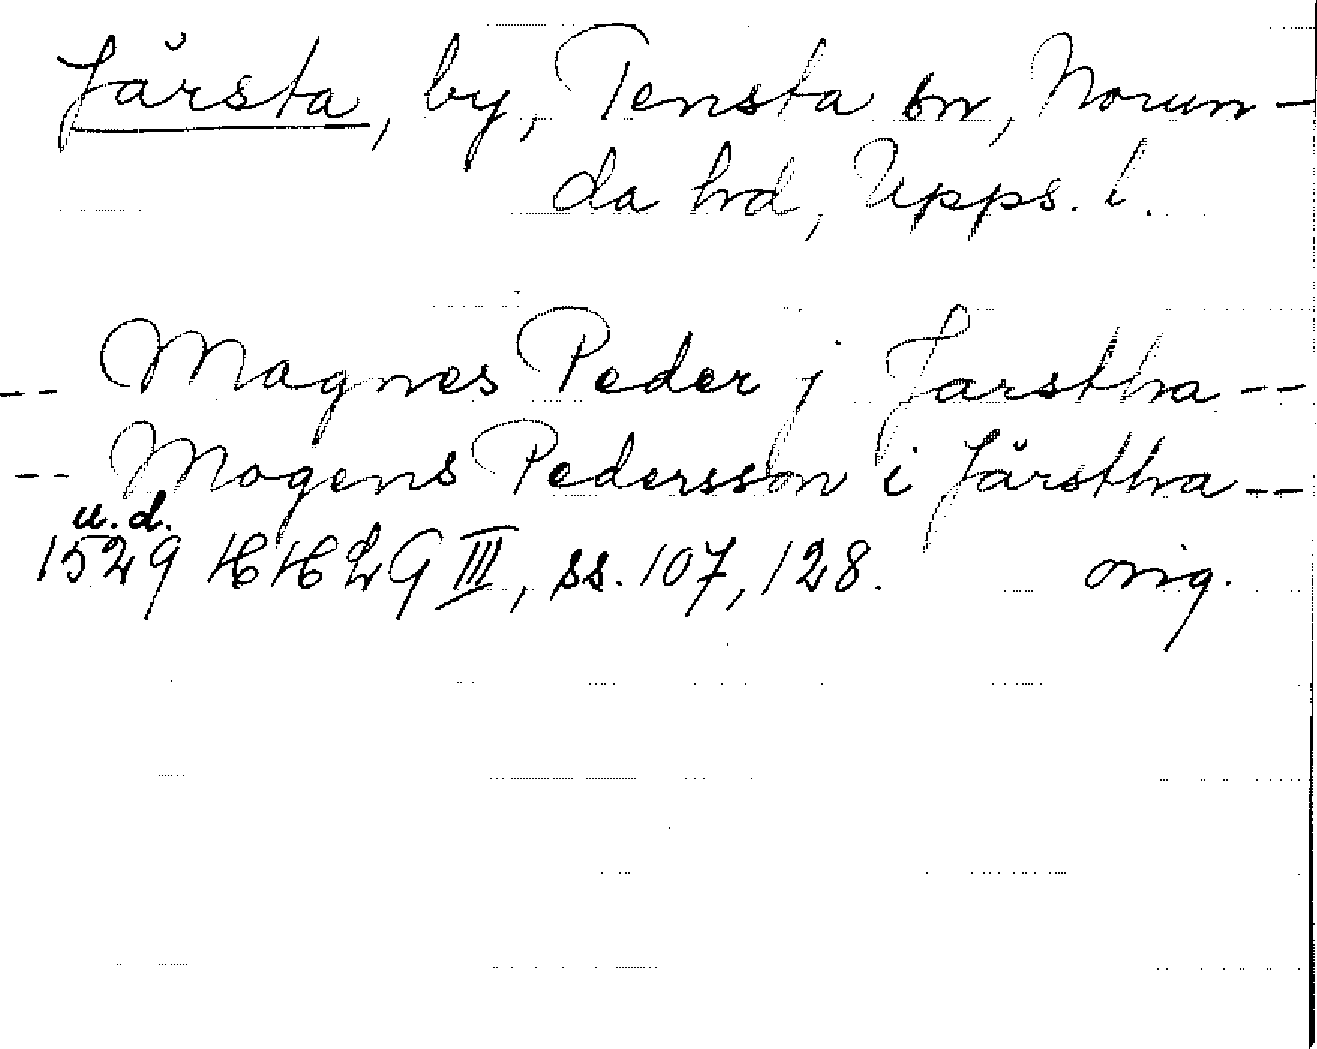 Järsta, by, Tensta sn, Norun-
da hd, Upps. l.
-- Magnes Peder j Jarstha --
-- Mogens Pedersson i Järstha --
u.d.
1529 HH LG III, ss. 107, 128. orig.